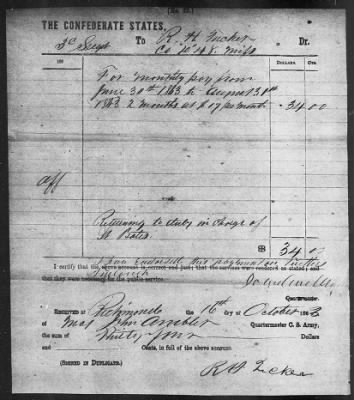 THE CONFEDERATE STATES,
3d Sergt To R. H. Tucker Dr.
Co 48 Miss
186 DOLLARS. CTS.
For monthly pay from
June 30th 1863 to August 31st
1863 2 months at $17 per month 34 00
Returning to duty in charge of
Bates
34 00
I have endorsed this payment on
furlough
I certify that the above account is correct and just; that the services were rendered as stated; and
that they were necessary for the public service.
Quartermaster.
RECEIVED at Richmond the 16th day of October 1863
of Maj John Ambler Quartermaster C. S. Army,
the sum of Thirty four
Dollars and Cents, in full of the above account.
(SIGNED IN DUPLICATE.) R H Tucker